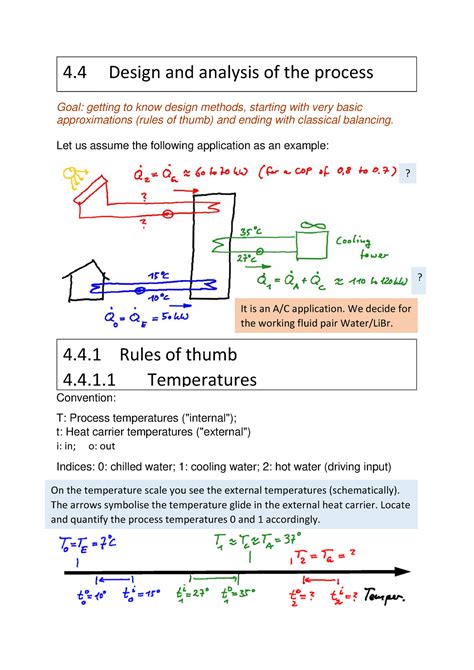 4.4 Design and analysis of the process
Goal: getting to know design methods, starting with very basic
approximations (rules of thumb) and ending with classical balancing.
Let us assume the following application as an example:
Q̇₂ = Q̇G ≈ 60 to 70 kW (for a COP of 0,8 to 0.7) ?
?
?
35°C
27°C
Cooling
tower
15°C
10°C
Q̇₁ = Q̇A + Q̇C ≈ 110 to 120 kW ?
Q̇₀ = Q̇E = 50 kW
It is an A/C application. We decide for
the working fluid pair Water/LiBr.
4.4.1 Rules of thumb
4.4.1.1 Temperatures
Convention:
T: Process temperatures ("internal");
t: Heat carrier temperatures ("external")
i: in; o: out
Indices: 0: chilled water; 1: cooling water; 2: hot water (driving input)
On the temperature scale you see the external temperatures (schematically).
The arrows symbolise the temperature glide in the external heat carrier. Locate
and quantify the process temperatures 0 and 1 accordingly.
T₀=TE = 7°C
T₁ ≈ TC ≈ TA = 37°
T₂ = TG = ?
t₀ᵒ=10° t₀ⁱ=15° t₁ⁱ=27° t₁ᵒ=35° t₂ᵒ=? t₂ⁱ=? Temper.